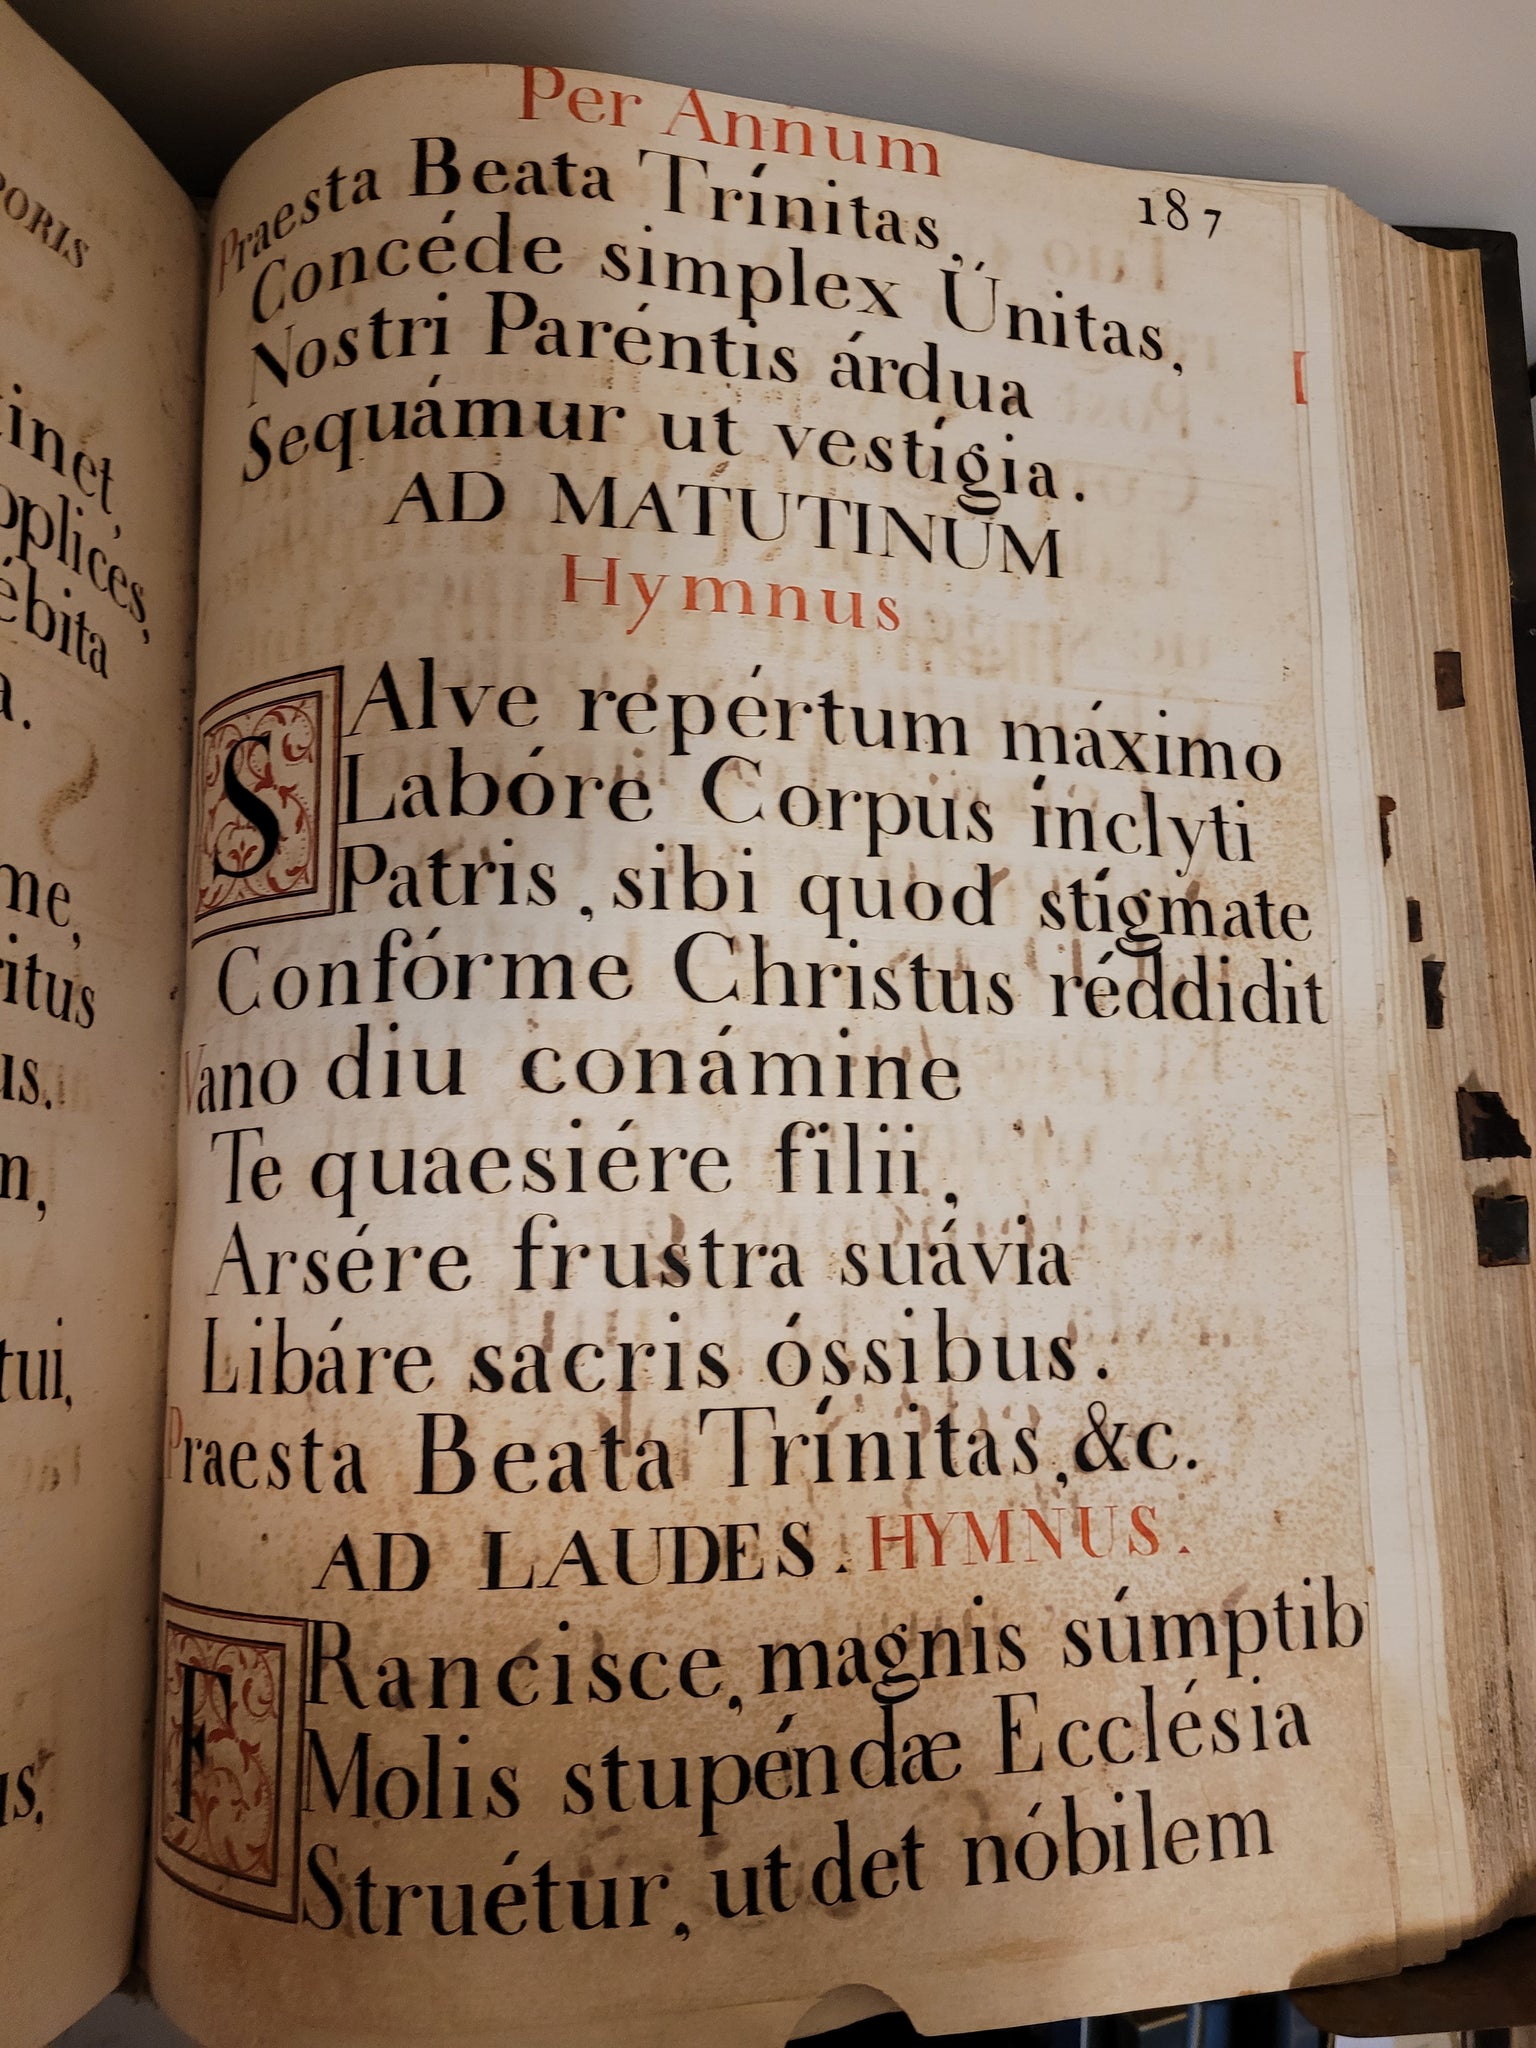 PORIS
inet,
pplices,
ébita
a.
me,
ritus
us.
m,
tui,
us.
Per Annum
187
Praesta Beata Trínitas,
Concéde simplex Únitas,
Nostri Paréntis árdua
Sequámur ut vestígia.
AD MATUTINUM
Hymnus
SAlve repértum máximo
Labóre Corpus ínclyti
Patris, sibi quod stígmate
Confórme Christus réddidit
Vano diu conámine
Te quaesiére filii,
Arsére frustra suávia
Libáre sacris óssibus.
Praesta Beata Trínitas, &c.
AD LAUDES. HYMNUS.
FRancisce, magnis súmptib
Molis stupéndæ Ecclésia
Struétur, ut det nóbilem